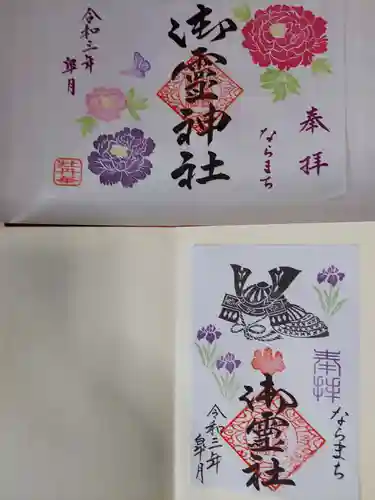 奉拝
ならまち
御霊神社
令和三年
皐月
牡丹華
奉拝
ならまち
御霊社
令和三年
皐月